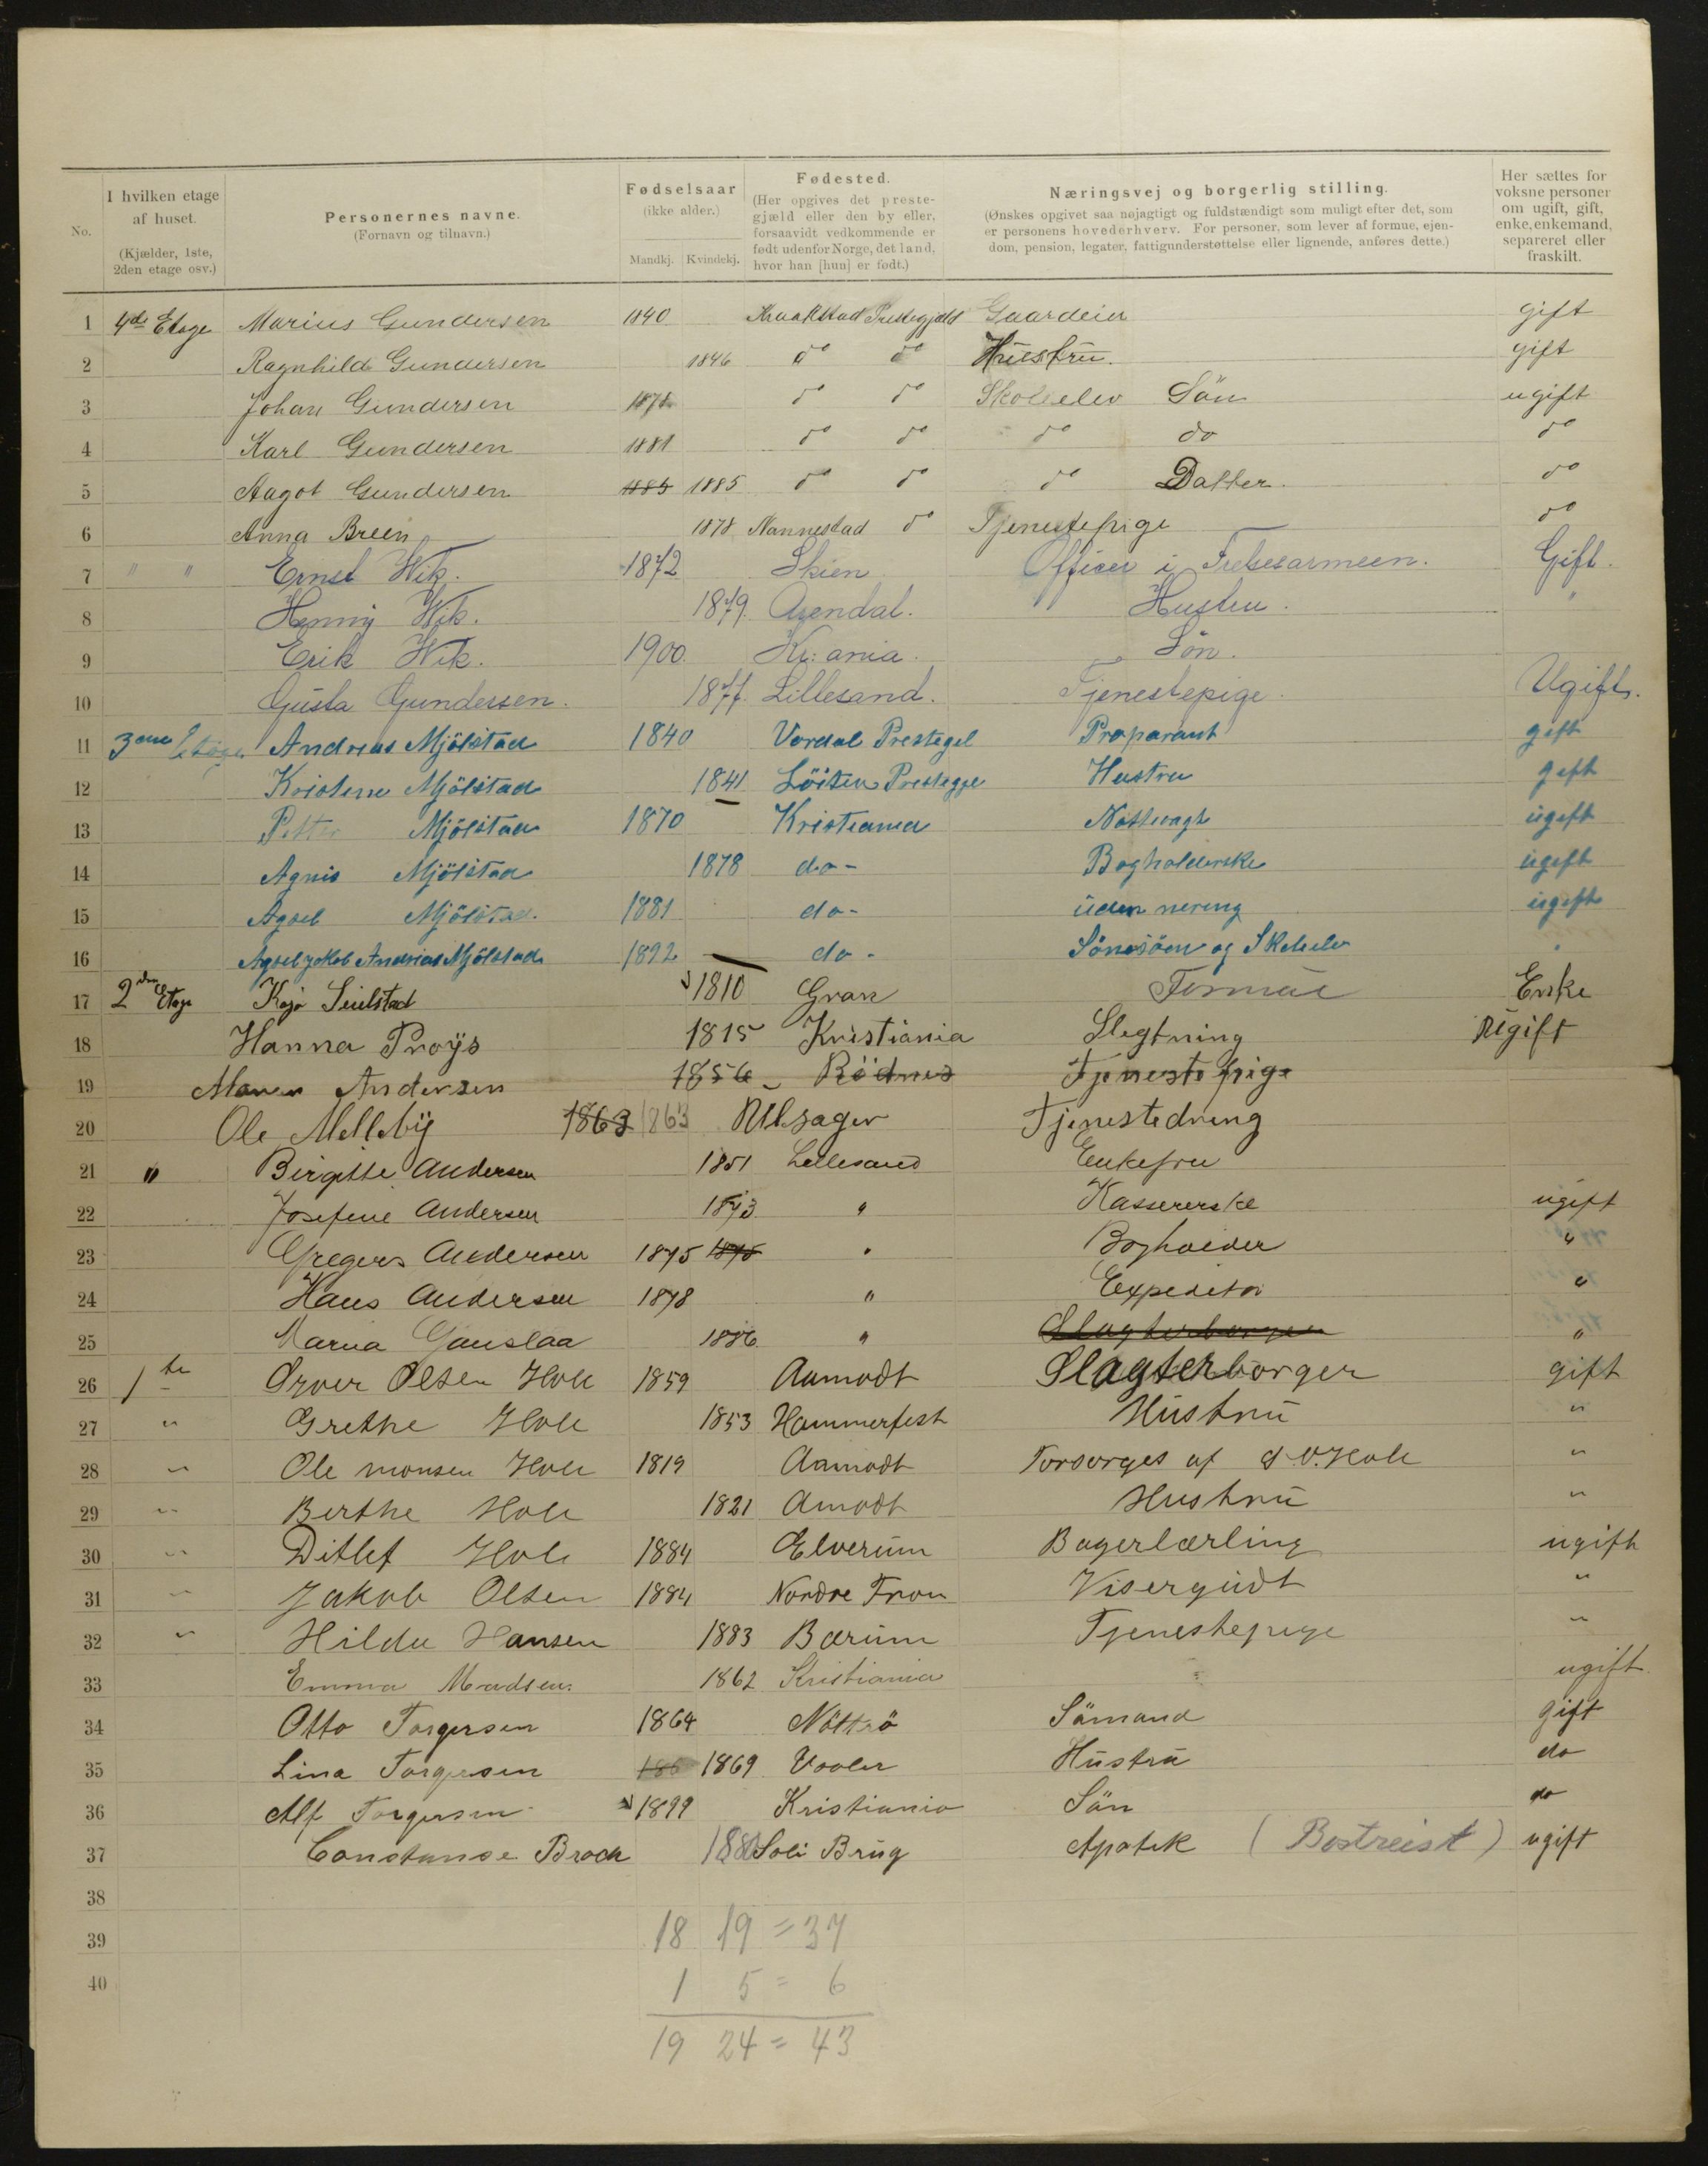 No.
I hvilken etage af huset. (Kjælder, 1ste, 2den etage osv.)
Personernes navne. (Fornavn og tilnavn.)
Fødselsaar (ikke alder.) Mandkj. Kvindekj.
Fødested. (Her opgives det prestegjæld eller den by eller, forsaavidt vedkommende er født udenfor Norge, det land, hvor han [hun] er født.)
Næringsvej og borgerlig stilling. (Ønskes opgivet saa nøjagtigt og fuldstændigt som muligt efter det, som er personens hovederhverv. For personer, som lever af formue, ejendom, pension, legater, fattigunderstøttelse eller lignende, anføres dette.)
Her sættes for voksne personer om ugift, gift, enke, enkemand, separeret eller fraskilt.
1 4de Etage Marius Gundersen 1840 Kraakstad Prestegjæld Gaardeier gift
2 Ragnhild Gundersen 1846 do do Hustru. gift
3 Johan Gundersen 1878 do do Skoleelev Sön ugift
4 Karl Gundersen 1881 do do do do do
5 Aagot Gundersen 1885 1885 do do do Datter. do
6 Anna Breen 1878 Nannestad do Tjenestepige do
7 " " Ernst Wik. 1872 Skien Officer i Frelsesarmeen. Gift.
8 Henny Wik. 1879. Arendal. Hustru. "
9 Erik Wik. 1900. Kr.ania. Sön.
10 Gusta Gundersen. 1877. Lillesand. Tjenestepige. Ugift.
11 3 Etage Andreas Mjölstad 1840 Vordal Prestegel Proparant gift
12 Kristene Mjölstad 1841 Löiten Prestegje Hustru gift
13 Petter Mjölstad 1870 Kristiania Natvagt ugift
14 Agnis Mjölstad 1878 do - Bogholderske ugift
15 Agsel Mjölstad. 1881 do - uden nering ugift
16 Agsel Jakob Andreas Mjölstad 1892 do - Sönesöen og Skolelev "
17 2den Etage Kaja Seielstad 1810 Gran Formue Enke
18 Hanna Proÿs 1815 Kristiania Slegtning Ugift
19 Maren Andersen 1856 Rödnes Tjenestepige
20 Ole Melleby 1863 1863 Ullsager Tjenestedreng
21 " Birgitte Andersen 1851 Lillesand Enkefru
22 Josefine Andersen 1873 " Kassererske ugift
23 Gregers Andersen 1875 1875 " Bogholder "
24 Hans Andersen 1878 " Expeditör "
25 Maria Gauslaa 1886 " Slagterborger "
26 1te Syver Olsen Hole 1859 Aamodt Slagterborger gift
27 " Grethe Hole 1853 Hammerfest Hustru "
28 " Ole monsen Hole 1819 Aamodt Forsorges af S.O. Hole "
29 " Berthe Hole 1821 Amodt Hustru "
30 " Ditlef Hole 1884 Elverum Bagerlærling ugift
31 " Jakob Olsen 1884 Nordre Fron Visergudt "
32 " Hilda Hansen 1883 Bærum Tjenestepige "
33 Emma Madsen. 1862 Kristiania ugift
34 Otto Torgersen 1864 Nötterö Sömand gift
35 Lina Torgersen 186 1869 Vaaler Hustru do
36 Alf Torgersen 1899 Kristiania Sön do
37 Constanse Brock 188 Soli Brug Apotek (Bortreist) ugift
38
39 18 19 = 37
40 1 5 = 6
19 24 = 43